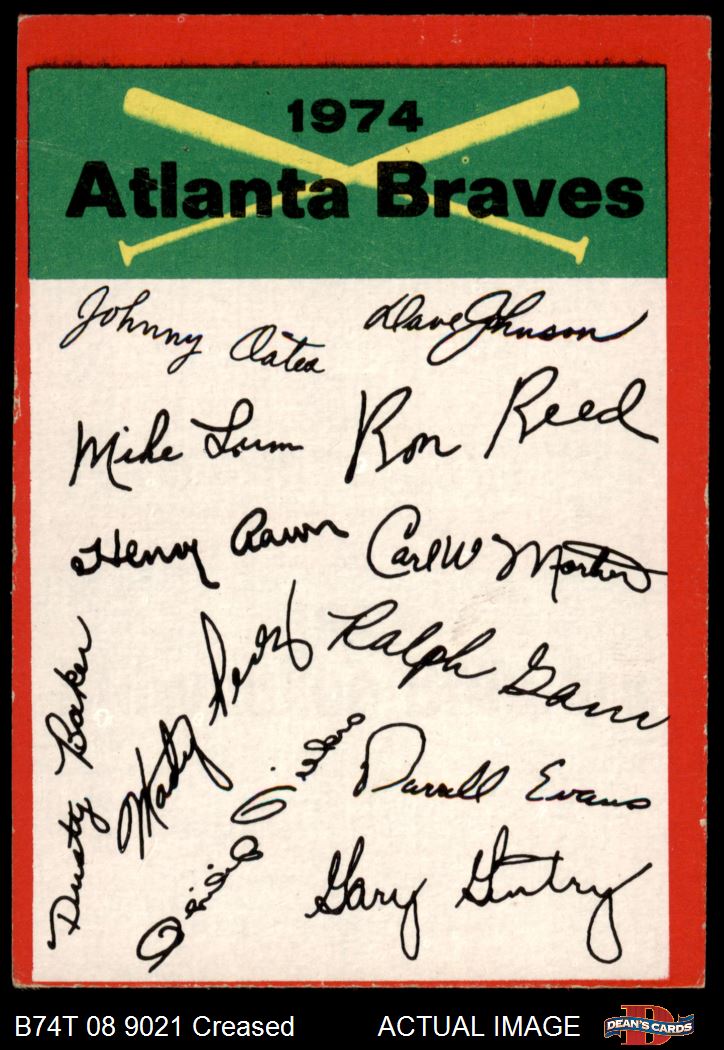 1974
Atlanta Braves
Johnny Oates
Dave Johnson
Mike Lum
Ron Reed
Henry Aaron
Carl W Morton
Dusty Baker
Marty Perez
Ralph Garr
Darrell Evans
Gary Gentry
B74T 08 9021 Creased
ACTUAL IMAGE
DEAN'S CARDS